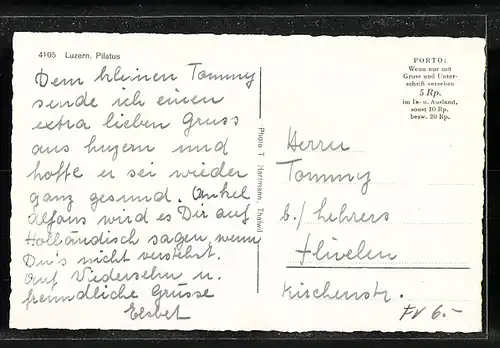 4105 Luzern. Pilatus
Dem kleinen Tommy
sende ich einen
extra lieben Gruss
aus Luzern und
hoffe er sei wieder
ganz gesund. Onkel
Alfons wird es Dir auf
Holländisch sagen, wenn
Du's nicht verstehst.
Auf Wiedersehn u.
freundliche Grüsse
Elsbet
Photo T. Hartmann, Thalwil
PORTO:
Wenn nur mit
Gruss und Unter-
schrift versehen
5 Rp.
im In- u. Ausland,
sonst 10 Rp.
bezw. 20 Rp.
Herrn
Tommy
b./ Lehrers
Flüelen
Kirchenstr.
FV 6.-